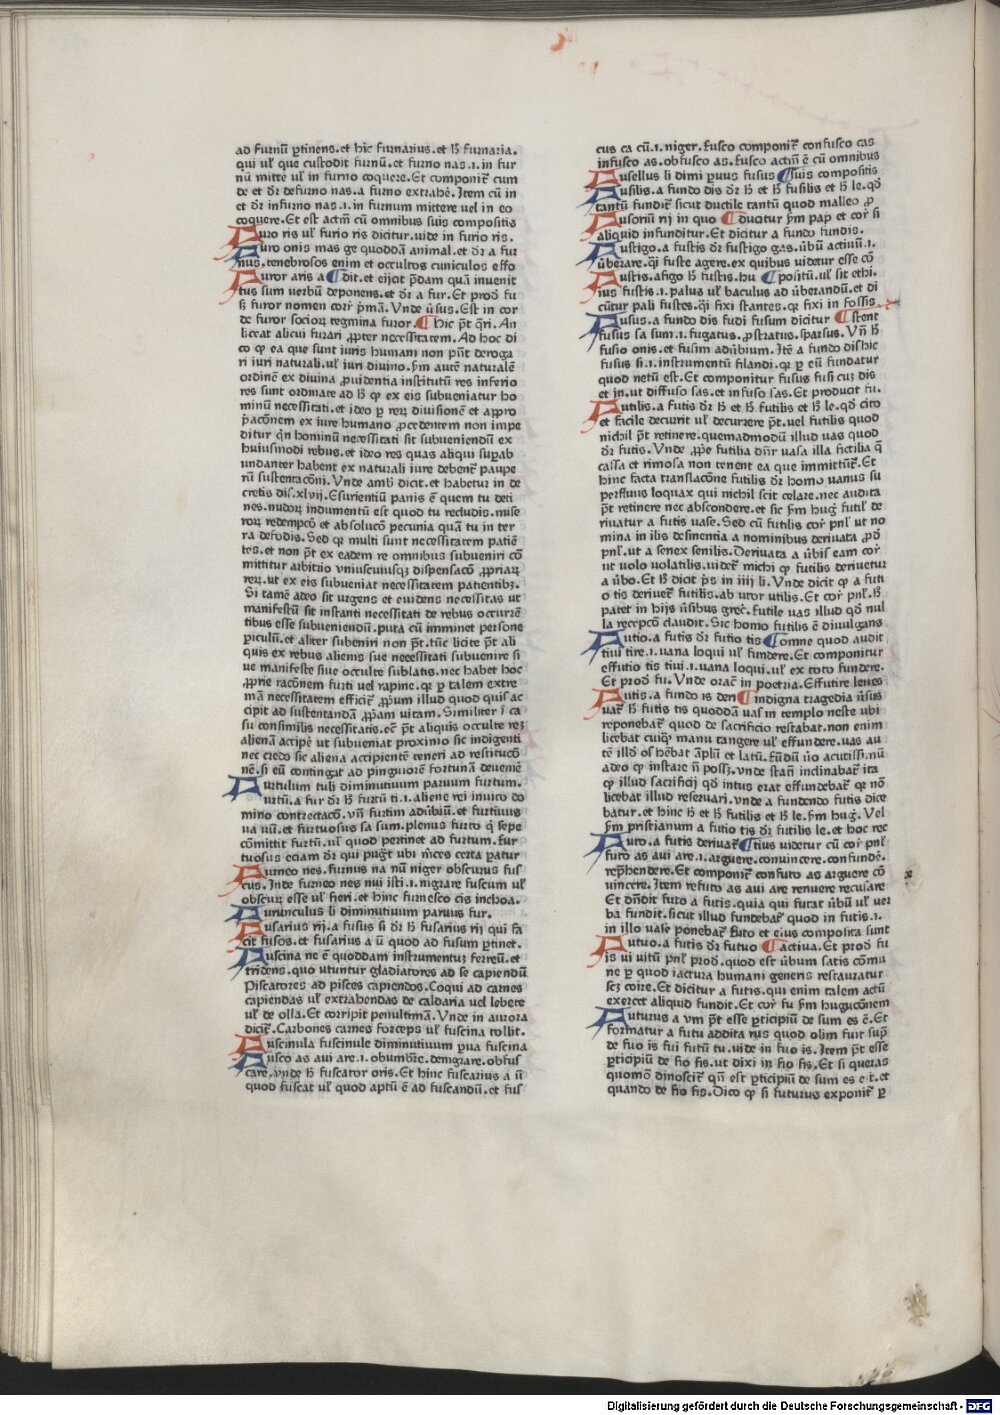 ad furnū ꝑtinens.et hic furnarius.et h̄ furnaria.
qui ul̓ que custodit furnū.et furno nas.i.in fur
nū mitte ul̓ in furno coquere.Et componit̃ cum
de et dr̄ defurno nas.a furno extrahē.Item cū in
et dr̄ infurno nas.i.in furnum mittere uel in eo
coquere.Et est actm̄ cū omnibus suis compositis
Furo ris ul̓ furio ris dicitur.uide in furio ris.
Furo onis mas ge quoddā animal.et dr̄ a fur
nus.tenebrosos enim et occultos cuniculos effo
Furor aris a ¶dit.et eijcit p̄dam quā inuenit
tus sum uerbū deponens.et dr̄ a fur.Et prod̄ fu
s̄ furor nomen corr̄ p̄mā.Vnde ūsus.Est in cor
de furor socioꝝ tegmina furor.¶hic p̄t q̄ri.An
liceat alicui furari ꝓpter necessitatem.Ad hoc di
co ꝙ ea que sunt iuris humani non pn̄t deroga
ri iuri naturali.ul̓ iuri diuino.ẜm autē naturalē
ordinē ex diuina ꝓuidentia institutū res inferio
res sunt ordinate ad h̄ ꝙ ex eis subueniatur ho
minū necessitati.et ideo ꝑ reꝝ diuisionē et appro
p̄acōnem ex iure humano ꝓcedentem non impe
ditur q̄n hominū necessitati sit subueniendū ex
huiusmodi rebus.et ideo res quas aliqui suꝑab
undanter habent ex naturali iure debent̃ paupe
rū sustentacōni.Vnde amb̄ dicit.et habetur in de
cretis dis.xlvij.Esurientiū panis ē quem tu deti
nes.nudoꝝ indumentū est quod tu recludis.mise
roꝝ redempcō et absolucō pecunia quā tu in ter
ra defodis.Sed qꝛ multi sunt necessitatem patiē
tes.et non p̄t ex eadem re omnibus subueniri cō
mittitur arbitrio vniuscuiusqꝫ dispensacō ꝓpriaꝝ
reꝝ.ut ex eis subueniat necessitatem patientibꝫ.
Si tamē adeo sit urgens et euidens necessitas ut
manifestū sit instanti necessitati de rebus occurrē
tibus esse subueniendū.puta cū imminet persone
ꝑiculū.et aliter subueniri non p̄t.tūc licite p̄t ali
quis ex rebus alienis sue necessitati subuenire si
ue manifeste siue occulte sublatis.nec habet hoc
ꝓprie racōnem furti uel rapine.qꝛ ꝑ talem extre
mā necessitatem efficit̃ ꝓpum illud quod quis ac
cipit ad sustentandā ꝓpam uitam.Similiter ī ca
su consimilis necessitatis.ec̄ p̄t aliquis occulte reꝫ
alienā accipe ut subueniat proximo sic indigenti
nec credo sic aliena accipientē teneri ad restitucō
nē.si eū contingat ad pinguiorē fortunā deuenē
Furtulum tuli diminutiuum paruum furtum.
Furtū.a fur dr̄ h̄ furtū ti.i.aliene rei inuito do
mino contrectacō.vn̄ furtim adūbiū.et furtiuus
ua uū.et furtuosus sa sum.plenus furto q̄ sepe
cōmittit furtū.ul̓ quod pertinet ad furtum.Fur
tuosus eciam dr̄ qui pug̓t ubi m̄ces certa ꝑatur
Furneo nes.furnus na nū niger obscurus fus
cus.Inde furneo nes nui isti.i.nigrare fuscum ul̓
obscuꝝ esse ul̓ fieri.et hinc furnesco cis inchoa.
Furunculus li diminutiuum paruus fur.
Fusarius rij.a fusus si dr̄ h̄ fusarius rij qui fa
cit fusos.et fusarius a ū quod ad fusum ꝑtinet.
Fuscina ne ē quoddam instrumentuꝫ ferreū.et
tridens.quo utuntur gladiatores ad se capiendū
Piscatores ad pisces capiendos.Coqui ad carnes
capiendas ul̓ extrahendas de caldaria uel lebete
ul̓ de olla.Et corripit penultimā.Vnde in aurora
dicit̃.Carbones carnes forceps ul̓ fuscina tollit.
Fuscinula fuscinule diminutiuum ꝑua fuscina
Fusco as aui are.i.obumbr̄e.denigrare.obfus
care.vnde h̄ fuscator oris.Et hinc fuscarius a ū
quod fuscat ul̓ quod aptū ē ad fuscandū.et fus
cus ca cū.i.niger.fusco componit̃ confusco cas
infusco as.obfusco as.fusco actm̄ ē cū omnibus
Fusellus li dimi ꝑuus fusus ¶suis compositis
Fusilis.a fundo dis dr̄ h̄ et h̄ fusilis et h̄ le.qd̄
tantū fundit̃ sicut ductile tantū quod malleo ꝓ
Fusoriū rij in quo ¶ducitur ẜm pap̄ et cor̄ si
aliquid infunditur.Et dicitur a fundo fundis.
Fustigo.a fustis dr̄ fustigo gas.ūbū actiuū.i.
ūberare.q̄i fuste agere.ex quibus uidetur esse cō
Fustis.a figo h̄ fustis.hu ¶positū.ul̓ sit ethi.
ius fustis.i.palus ul̓ baculus ad ūberandū.et di
cūtur pali fustes.q̄i fixi stantes.qꝛ fixi in fossis
Fusus.a fundo dis fudi fusum dicitur ¶stent
fusus sa sum.i.fugatus.ꝓstratus.sparsus.Vn̄ h̄
fusio onis.et fusim adūbium.Itē a fundo dis hic
fusus si.i.instrumentū filandi.qꝛ ꝑ eū fundatur
quod netū est.Et componitur fusus fusi cuꝫ dis
et in.ut diffuso sas.et infuso sas.Et producit fu.
Futilis.a futis dr̄ h̄ et h̄ futilis et h̄ le.qd̄ cito
et facile decurrit ul̓ decurrere p̄t.uel futilis quod
nichil p̄t retinere.quemadmodū illud uas quod
dr̄ futis.Vnde ꝓpe futilia dn̄r uasa illa fictilia q̄
cassa et rimosa non tenent ea que immittūt̃.Et
hinc facta translacōne futilis dr̄ homo uanus su
perfluus loquax qui nichil scit celare.nec audita
p̄t retinere nec abscondere.et sic ẜm hug̓ futil̓ de
riuatur a futis uase.Sed cū futilis cor̄ pnl̓ ut no
mina in ilis desinentia a nominibus deriuata ꝓd̄
pnl̓.ut a senex senilis.Deriuata a ūbis eam cor̄
ut uolo uolatilis.uidet̃ michi ꝙ futilis deriuetur
a ūbo.Et h̄ dicit p̄s in iiij li.Vnde dicit ꝙ a futi
o tis deriuet̃ futilis.ab utor utilis.Et cor̄ pnl̓.h̄
patet in hijs ūsibus grec̓.Futile uas illud qd̄ nul
la recepcō claudit.Sic homo futilis ē diuulgans
Futio.a futis dr̄ futio tis ¶omne quod audit
tiui tire.i.uana loqui ul̓ fundere.Et componitur
effutio tis tiui.i.uana loqui.ul̓ ex toto fundere.
Et prod̄ fu.Vnde orac̄ in poetria.Effutire leues
Futis.a fundo is den ¶indigna tragedia ūsus
uat̃ h̄ futis tis quoddā uas in templo neste ubi
reponebat̃ quod de sacrificio restabat.non enim
licebat cuiqꝫ manu tangere ul̓ effundere.uas au
tē illd̄ os hēbat āplū et latū.fūdū ūo acutissi.nū
adeo ꝙ instare n̄ poss̄ꝫ.vnde stan̄ inclinabat̃ ita
ꝙ illud sacrificij qd̄ intus erat effundebat̃ qꝛ nō
licebat illud reseruari.vnde a fundendo futis dice
batur.et hinc h̄ et h̄ futilis et h̄ le.ẜm hug̓.Vel
ẜm pristianum a futio tis dr̄ futilis le.et hoc rec
Futo.a futis deriuat̃ ¶tius uidetur cū cor̄ pnl̓
futo as aui are.i.arguere.conuincere.confundē.
rep̄hendere.Et componit̃ confuto as arguere cō
uincere.Item refuto as aui are renuere recusare
Et dn̄dit futo a futis.quia qui futat ūbū ul̓ uer
ba fundit.sicut illud fundebat̃ quod in futis.i.
in illo uase ponebat̃.Futo et eius composita sunt
Futuo.a futis dr̄ futuo ¶actiua.Et prod̄ fu
is ui uitū pnl̓ prod̄.quod est ūbum satis cōmu
ne ꝑ quod iactura humani generis restauratur
scꝫ coire.Et dicitur a futis.qui enim talem actū
exercet aliquid fundit.Et cor̄ fu ẜm huguconem
Futurus a vm p̄t esse ꝑticipiū de sum es ē.Et
formatur a futu addita rus quod olim fuit sup̄
de fuo is fui futū tu.uide in fuo is.Item p̄t esse
ꝑticipiū de fio fis.ut dixi in fio fis.Et si queras
quomō dinoscit̃ qn̄ est ꝑticipiū de sum es e t.et
quando de fio fis.Dico ꝙ si futurus exponit̃ ꝑ
Digitalisierung gefördert durch die Deutsche Forschungsgemeinschaft - DFG